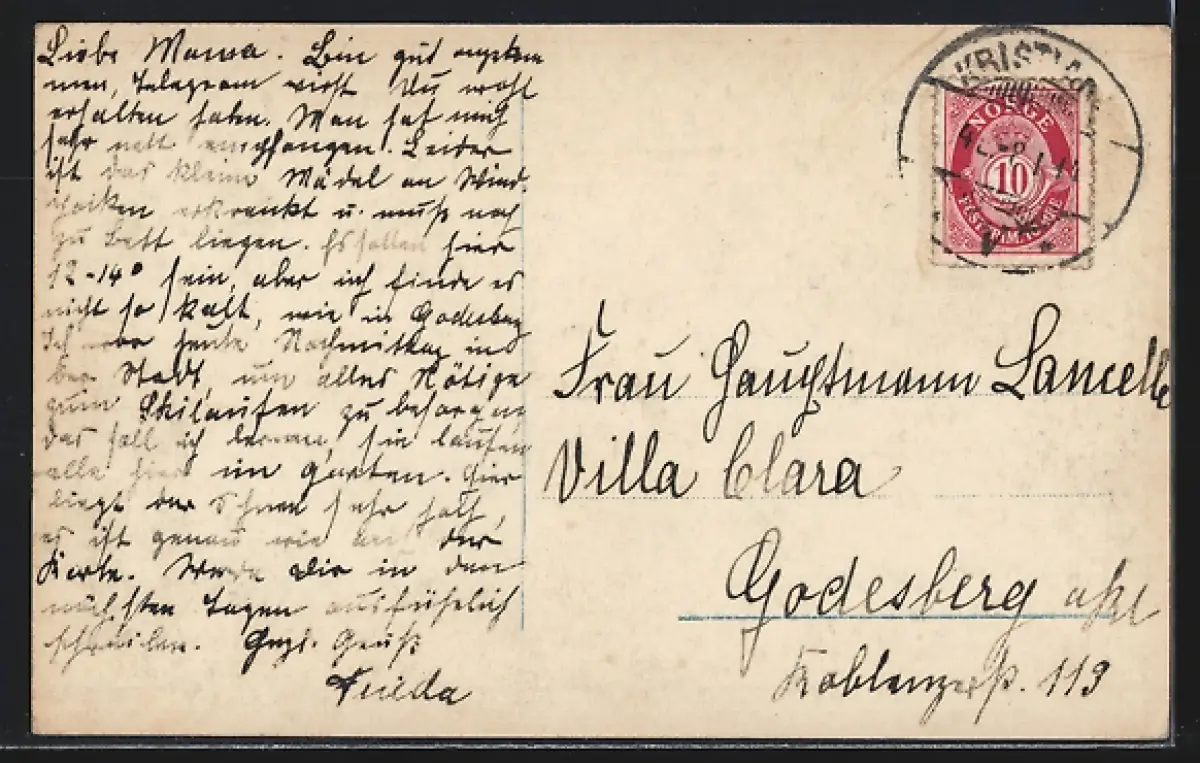 Liebe Mama. Bin gut angekom
men, Telegram wirst Du wohl
erhalten haben. Man hat mich
sehr nett empfangen. Leider
ist das kleine Mädel an Wind-
pocken erkrankt u. muß noch
zu Bett liegen. Es sollen hier
12-14° sein, aber ich finde es
nicht so kalt, wie in Godesberg
Ich war heute Nachmittag in
der Stadt, um alles Nötige
zum Skilaufen zu besorgen,
das soll ich lernen, sie laufen
alle hier im Garten. Hier
liegt der Schnee sehr hoch,
es ist genau wie auf der
Karte. Werde Dir in den
nächsten Tagen ausführlich
schreiben. Herzl. Gruß
Frieda
KRISTIANIA
NORGE
10
POSTFRIMERKE
Frau Hauptmann Lancelle
Villa Clara
Godesberg a/Rh
Koblenzerstr. 119